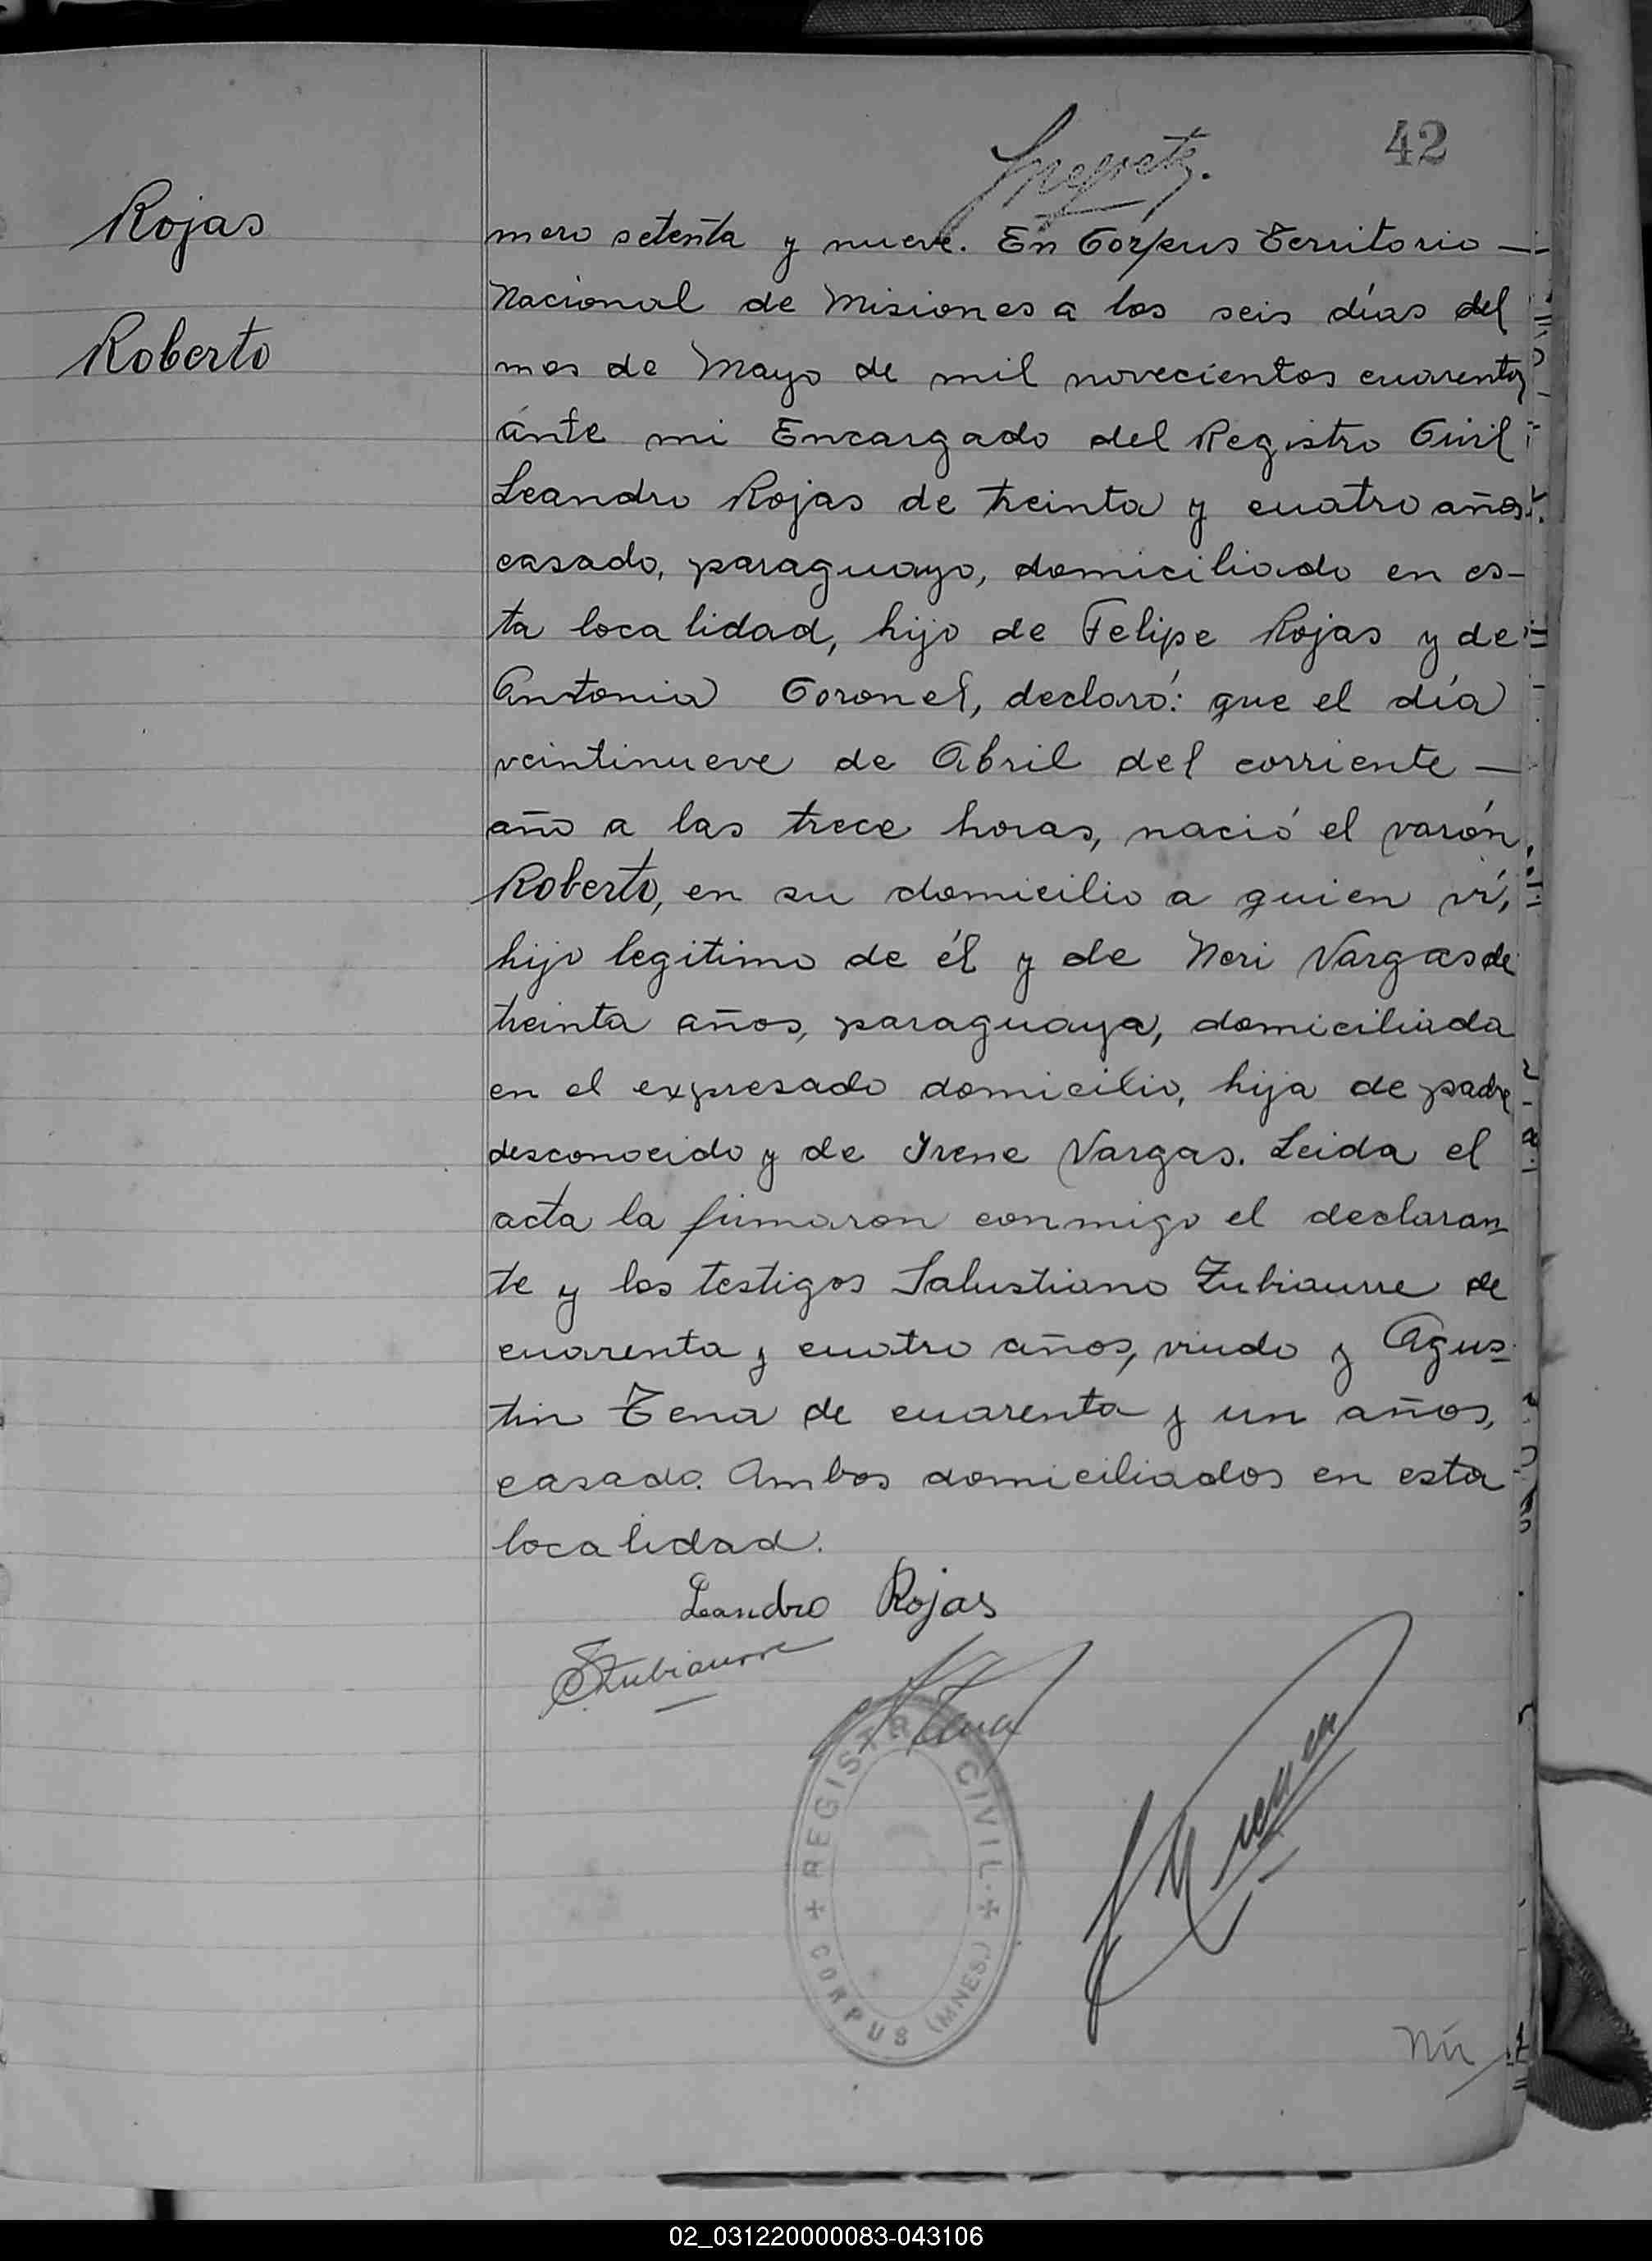 42
Rojas
Roberto
mero setenta y nueve. En Corpus Territorio —
Nacional de Misiones a los seis días del
mes de Mayo de mil novecientos cuarenta,
ánte mi Encargado del Registro Civil
Leandro Rojas de treinta y cuatro años
casado, paraguayo, domiciliado en es-
ta localidad, hijo de Felipe Rojas y de
Antonia Coronel, declaró: que el día
veintinueve de Abril del corriente —
año a las trece horas, nació el varón
Roberto, en su domicilio a quien ví,
hijo legitimo de él y de Neri Vargas de
treinta años, paraguaya, domiciliada
en el expresado domicilio, hija de padre
desconocido y de Irene Vargas. Leida el
acta la firmaron conmigo el declaran-
te y los testigos Salustiano Zubiaurre de
cuarenta y cuatro años, viudo y Agus-
tin Tena de cuarenta y un años,
casado. Ambos domiciliados en esta
localidad.
Leandro Rojas
SZubiaurre
Tena
REGISTRO CIVIL
CORPUS (MNES.)
Nú
02_031220000083-043106